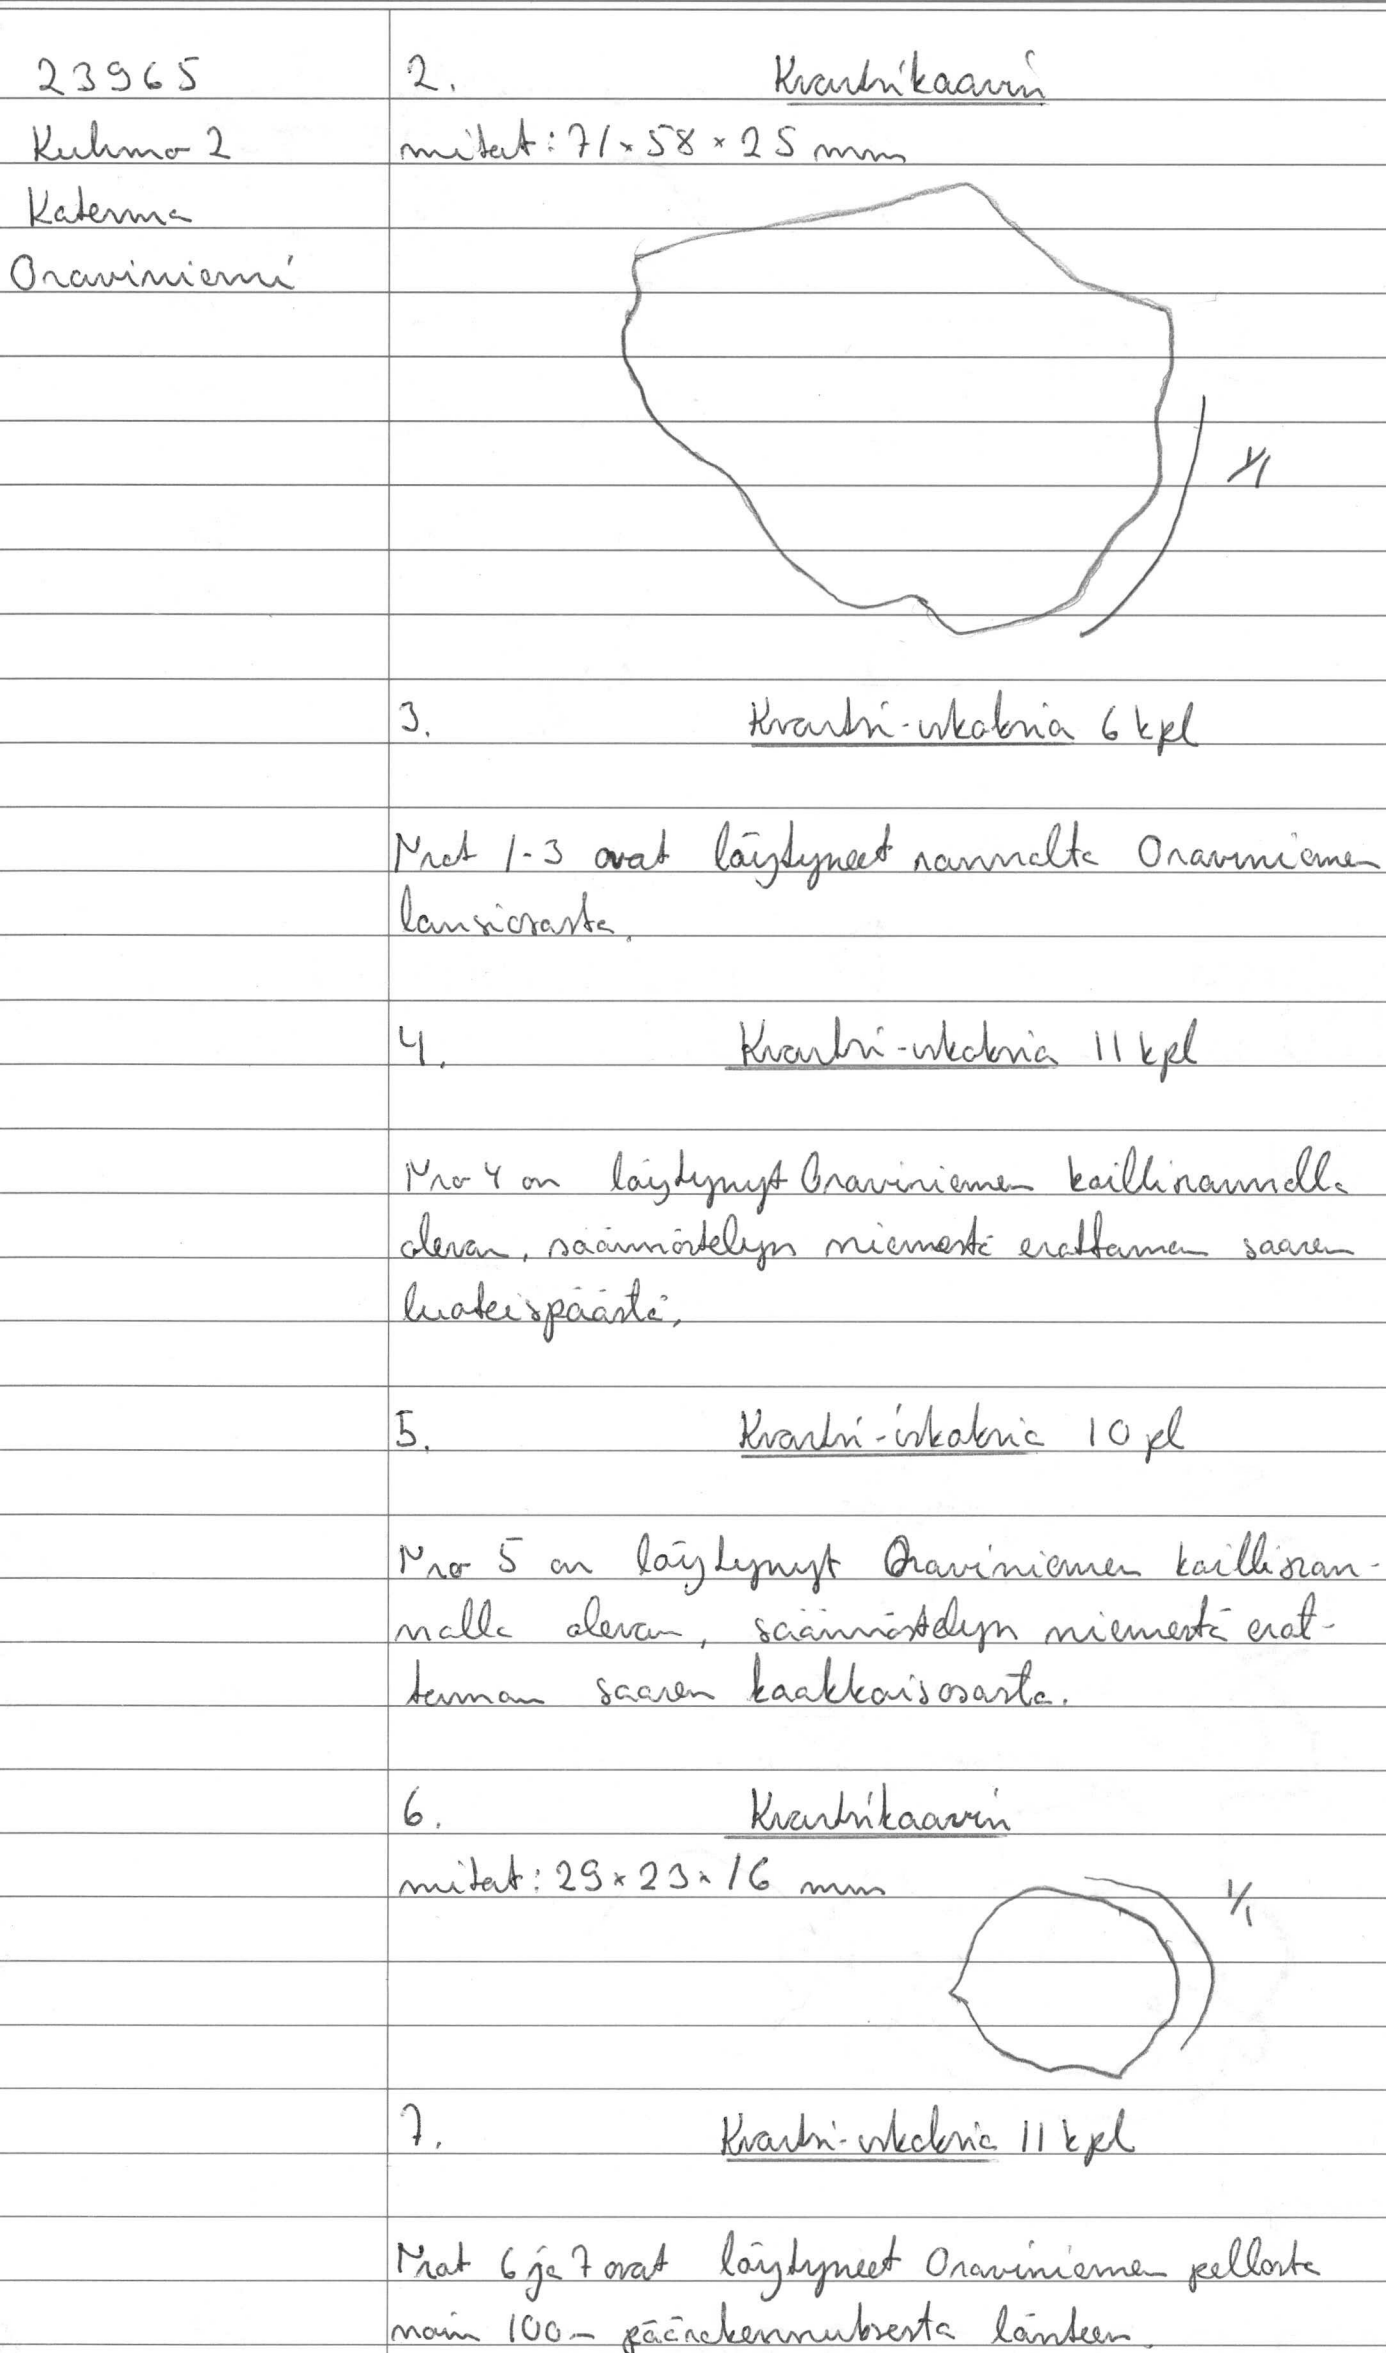 23965
Kuhmo 2
Katerma
Oraviniemi
2. Kvartsikaavin
mitat: 71 x 58 x 25 mm
1/1
3. Kvartsi-iskoksia 6 kpl
Nrot 1-3 ovat löytyneet rannalta Oraviniemen
länsiosasta.
4. Kvartsi-iskoksia 11 kpl
Nro 4 on löytynyt Oraviniemen koillisrannalla
olevan, säännöstelyn niemestä erottaman saaren
luoteispäästä.
5. Kvartsi-iskoksia 10 pl
Nro 5 on löytynyt Oraviniemen koillisran-
nalla olevan, säännöstelyn niemestä erot-
taman saaren kaakkoisosasta.
6. Kvartsikaavin
mitat: 29 x 23 x 16 mm
1/1
7. Kvartsi-iskoksia 11 kpl
Nrot 6 ja 7 ovat löytyneet Oraviniemen pellosta
noin 100 m päärakennuksesta länteen.